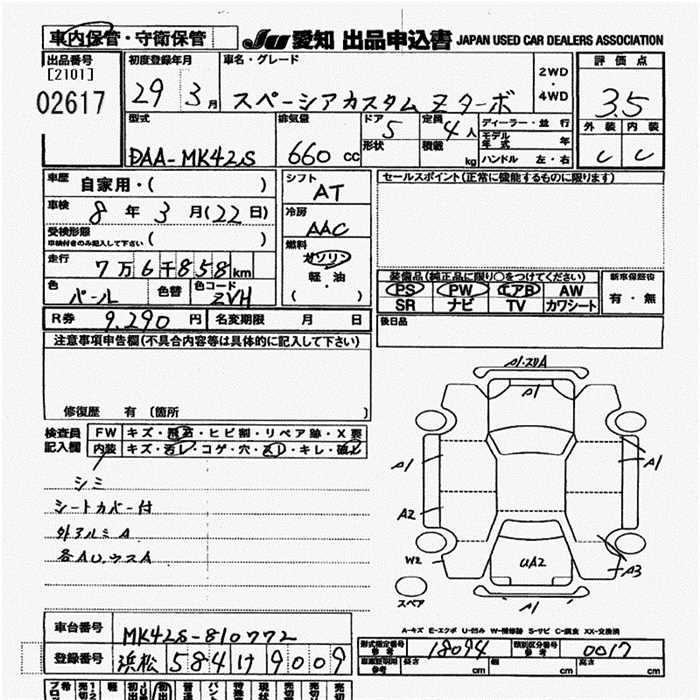 車内保管・守衛保管
JU 愛知 出品申込書 JAPAN USED CAR DEALERS ASSOCIATION
出品番号
[2101]
02617
初度登録年月
29 3月
車名・グレード
スペーシアカスタム Z ターボ
2WD
・
4WD
評価点
3.5
外装 内装
C C
型式
DAA-MK42S
排気量
660 cc
ドア 5
形状
定員 4人
積載 kg
ディーラー・並行
モデル年式 年
ハンドル 左・右
車歴 自家用・( )
車検 8年3月(22日)
受検形態
車検付きのみ記入して下さい ( )
走行 7万6千858km
色 パール 色替 色コード ZVH
シフト
AT
冷房
AAC
燃料
ガソリン
軽・油
( )
セールスポイント(正常に機能するものに限ります)
装備品(純正品に限り○をつけてください)
PS PW エアB AW
SR ナビ TV カワシート
新車保証書
有・無
R券 9,290円 名変期限 月 日
後日品
注意事項申告欄(不具合内容等は具体的に記入して下さい)
修復歴 有 〔箇所 〕
検査員
記入欄
FW キズ・飛石・ヒビ割・リペア跡・X要
内装 キズ・汚レ・コゲ・穴・スリ・キレ・破レ
シミ
シートカバー付
外アルミA
各AU,ウスA
A1・スリA
A1
A1
A1
A2
W2
UA2
A3
A1
スペア
A-キズ E-エクボ U-凹み W-補修跡 S-サビ C-腐食 XX-交換済
車台番号 MK42S-810772
登録番号 浜松 584 け 9009
型式指定番号
参考
18094
類別区分番号
参考
0017
長さ cm 幅 cm 高さ cm